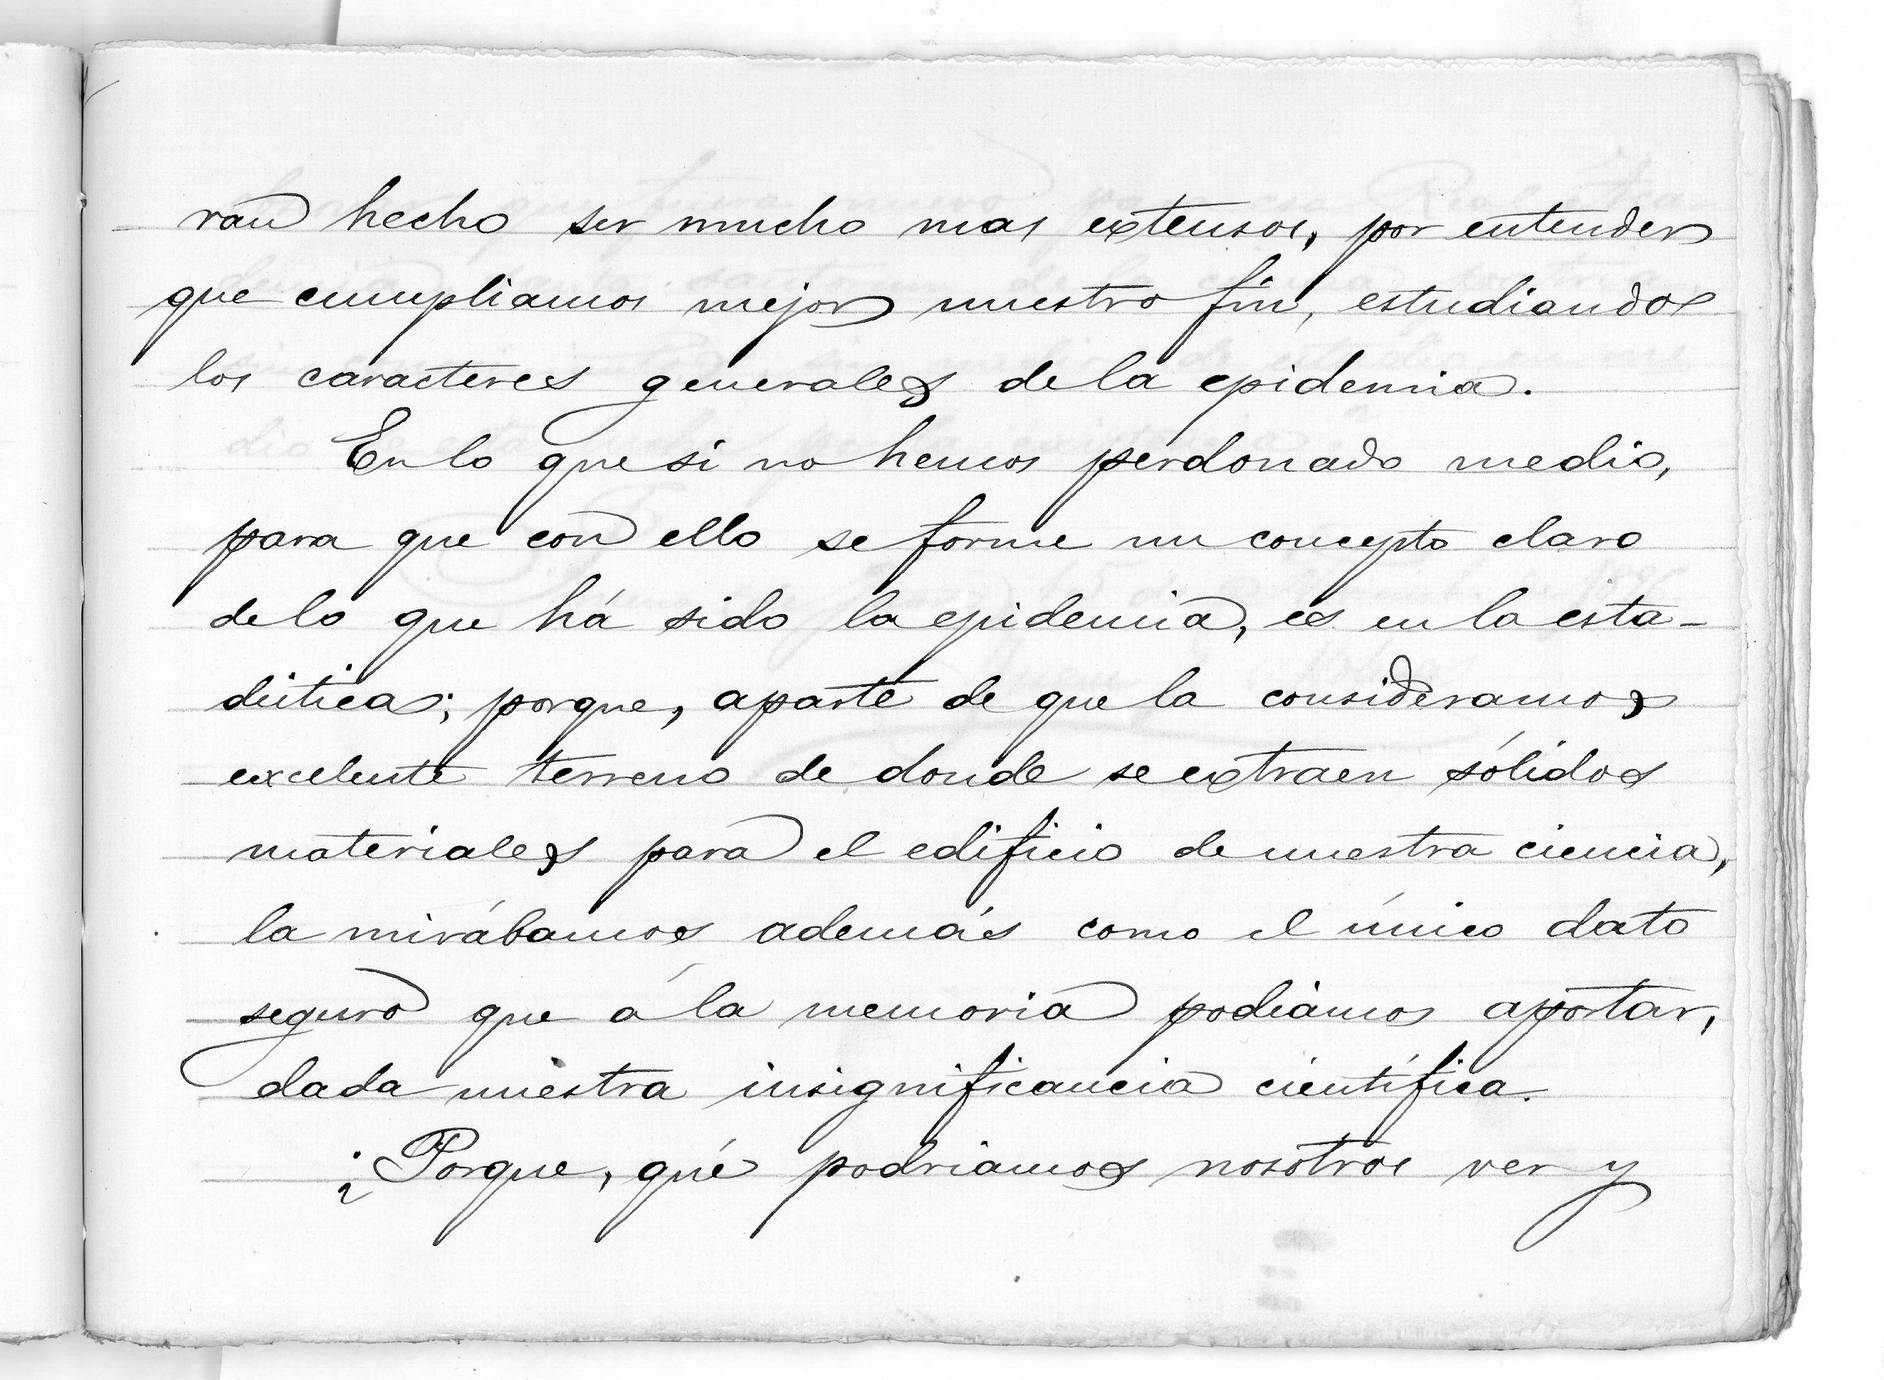 ran hecho ser mucho mas extensos, por entender
que cumpliamos mejor nuestro fin, estudiando
los caracteres generales de la epidemia.
En lo que si no hemos perdonado medio,
para que con ello se forme un concepto claro
de lo que há sido la epidemia, es en la esta-
dística; porque, aparte de que la consideramos
excelente terreno de donde se extraen sólidos
materiales para el edificio de nuestra ciencia,
la mirábamos además como el único dato
seguro que á la memoria podiamos aportar,
dada nuestra insignificancia científica.
¿Porque, qué podriamos nosotros ver y